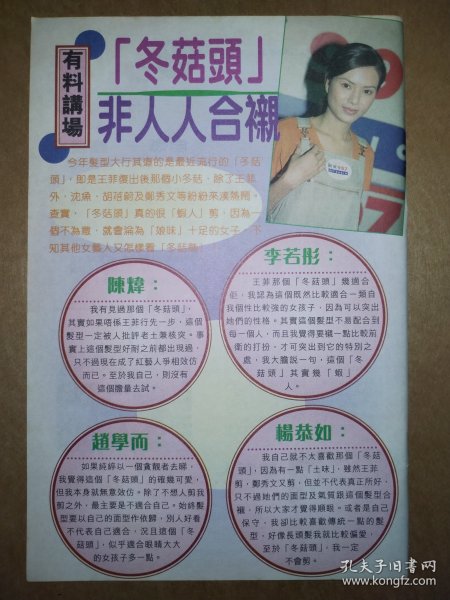 有料講場
「冬菇頭」
非人人合襯
今年髮型大行其道的是最近流行的「冬菇
頭」，即是王菲復出後那個小冬菇，除了王菲
外，沈魚、胡蓓蔚及鄭秀文等紛紛來湊熱鬧。
查實，「冬菇頭」真的很「蝦人」剪，因為一
個不為意，就會淪為「娘味」十足的女子，不
知其他女藝人又怎樣看「冬菇頭」
陳煒：
我有見過那個「冬菇頭」，
其實如果唔係王菲行先一步，這個
髮型一定被人批評老土兼核突。事
實上這個髮型好耐之前都出現過，
只不過現在成了紅藝人爭相效仿
而已。至於我自己，則沒有
這個膽量去試。
李若彤：
王菲那個「冬菇頭」幾適合
佢，我認為這個既然比較適合一類自
我個性比較強的女孩子，因為可以突出
她們的性格。其實這個髮型不易配合到
每一個人，而且我覺得要襯一點比較前
衛的打扮，才可突出到它的特別之
處，我大膽說一句，這個「冬
菇頭」其實幾「蝦」
人。
趙學而：
如果純綷以一個貪靚者去睇，
我覺得這個「冬菇頭」的確幾可愛，
但我本身就無意效仿。除了不想人剪我
剪之外，最主要是不適合自己。始終髮
型要以自己的面型作依歸，別人好看
不代表自己適合，況且這個「冬
菇頭」，似乎適合眼睛大大
的女孩子多一點。
楊恭如：
我自己就不太喜歡那個「冬菇
頭」，因為有一點「土味」，雖然王菲
剪，鄭秀文又剪，但並不代表真正所好，
只不過她們的面型及氣質跟這個髮型合
襯，所以大家才覺得順眼。或者是自己
保守，我卻比較喜歡傳統一點的髮
型，好像長頭髮我就比較偏愛，
至於「冬菇頭」，我一定
不會剪。
孔夫子旧书网
www.kongfz.com